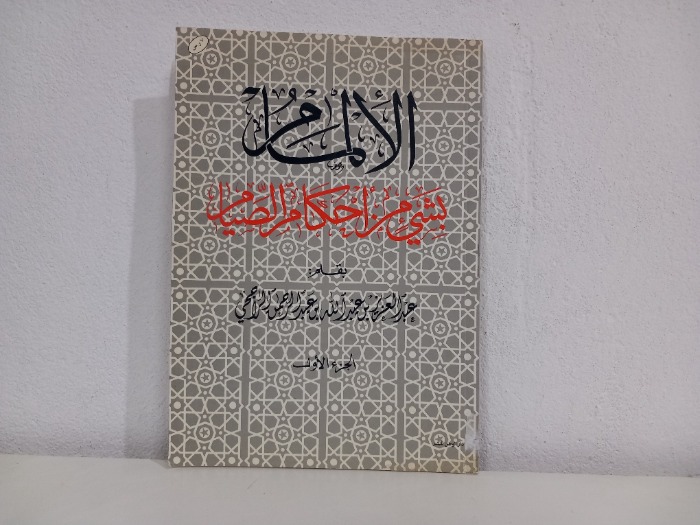 الألمام
بشيء من أحكام الصيام
بقلم:
عبد العزيز بن عبد الله بن عبد الرحمن الراجحي
الجزء الأول